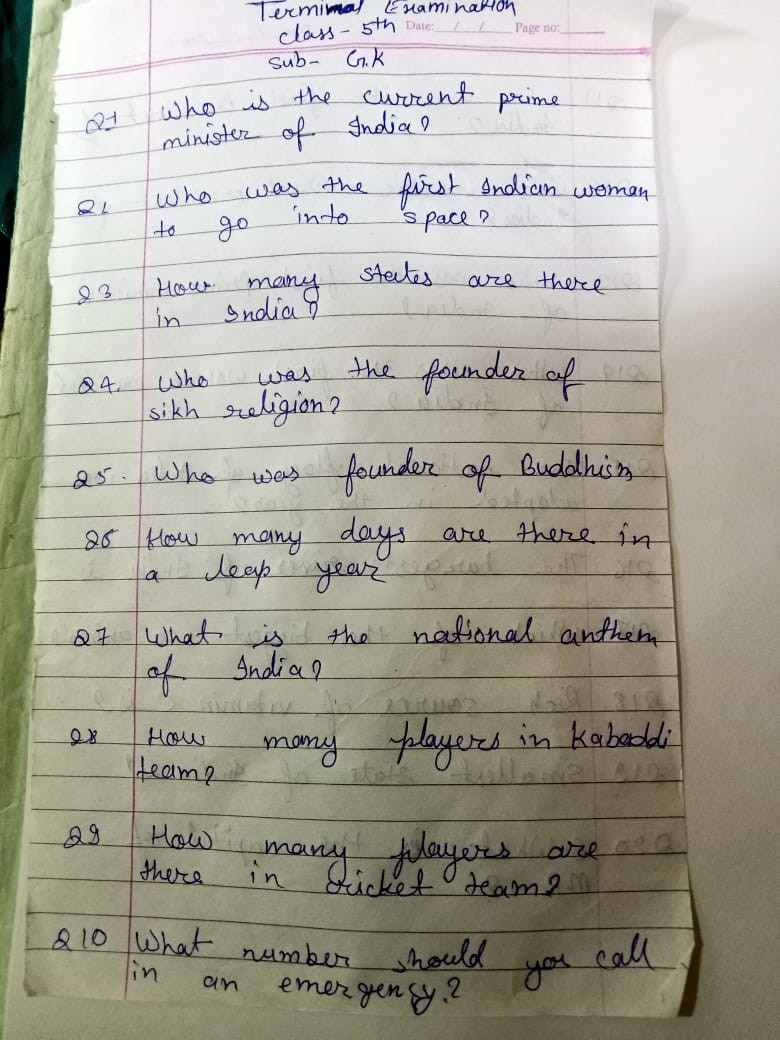 Terminal Examination
class - 5th Date: / / Page no:
Sub- G.K
Q1 Who is the current prime
minister of India?
Q2 Who was the first Indian woman
to go into space?
Q3 How many states are there
in India?
Q4. Who was the founder of
sikh religion?
Q5. Who was founder of Buddhism
Q6 How many days are there in
a leap year
Q7 What is the national anthem
of India?
Q8 How many players in Kabaddi
team?
Q9 How many players are
there in cricket team?
Q10 What number should you call
in an emergency.?